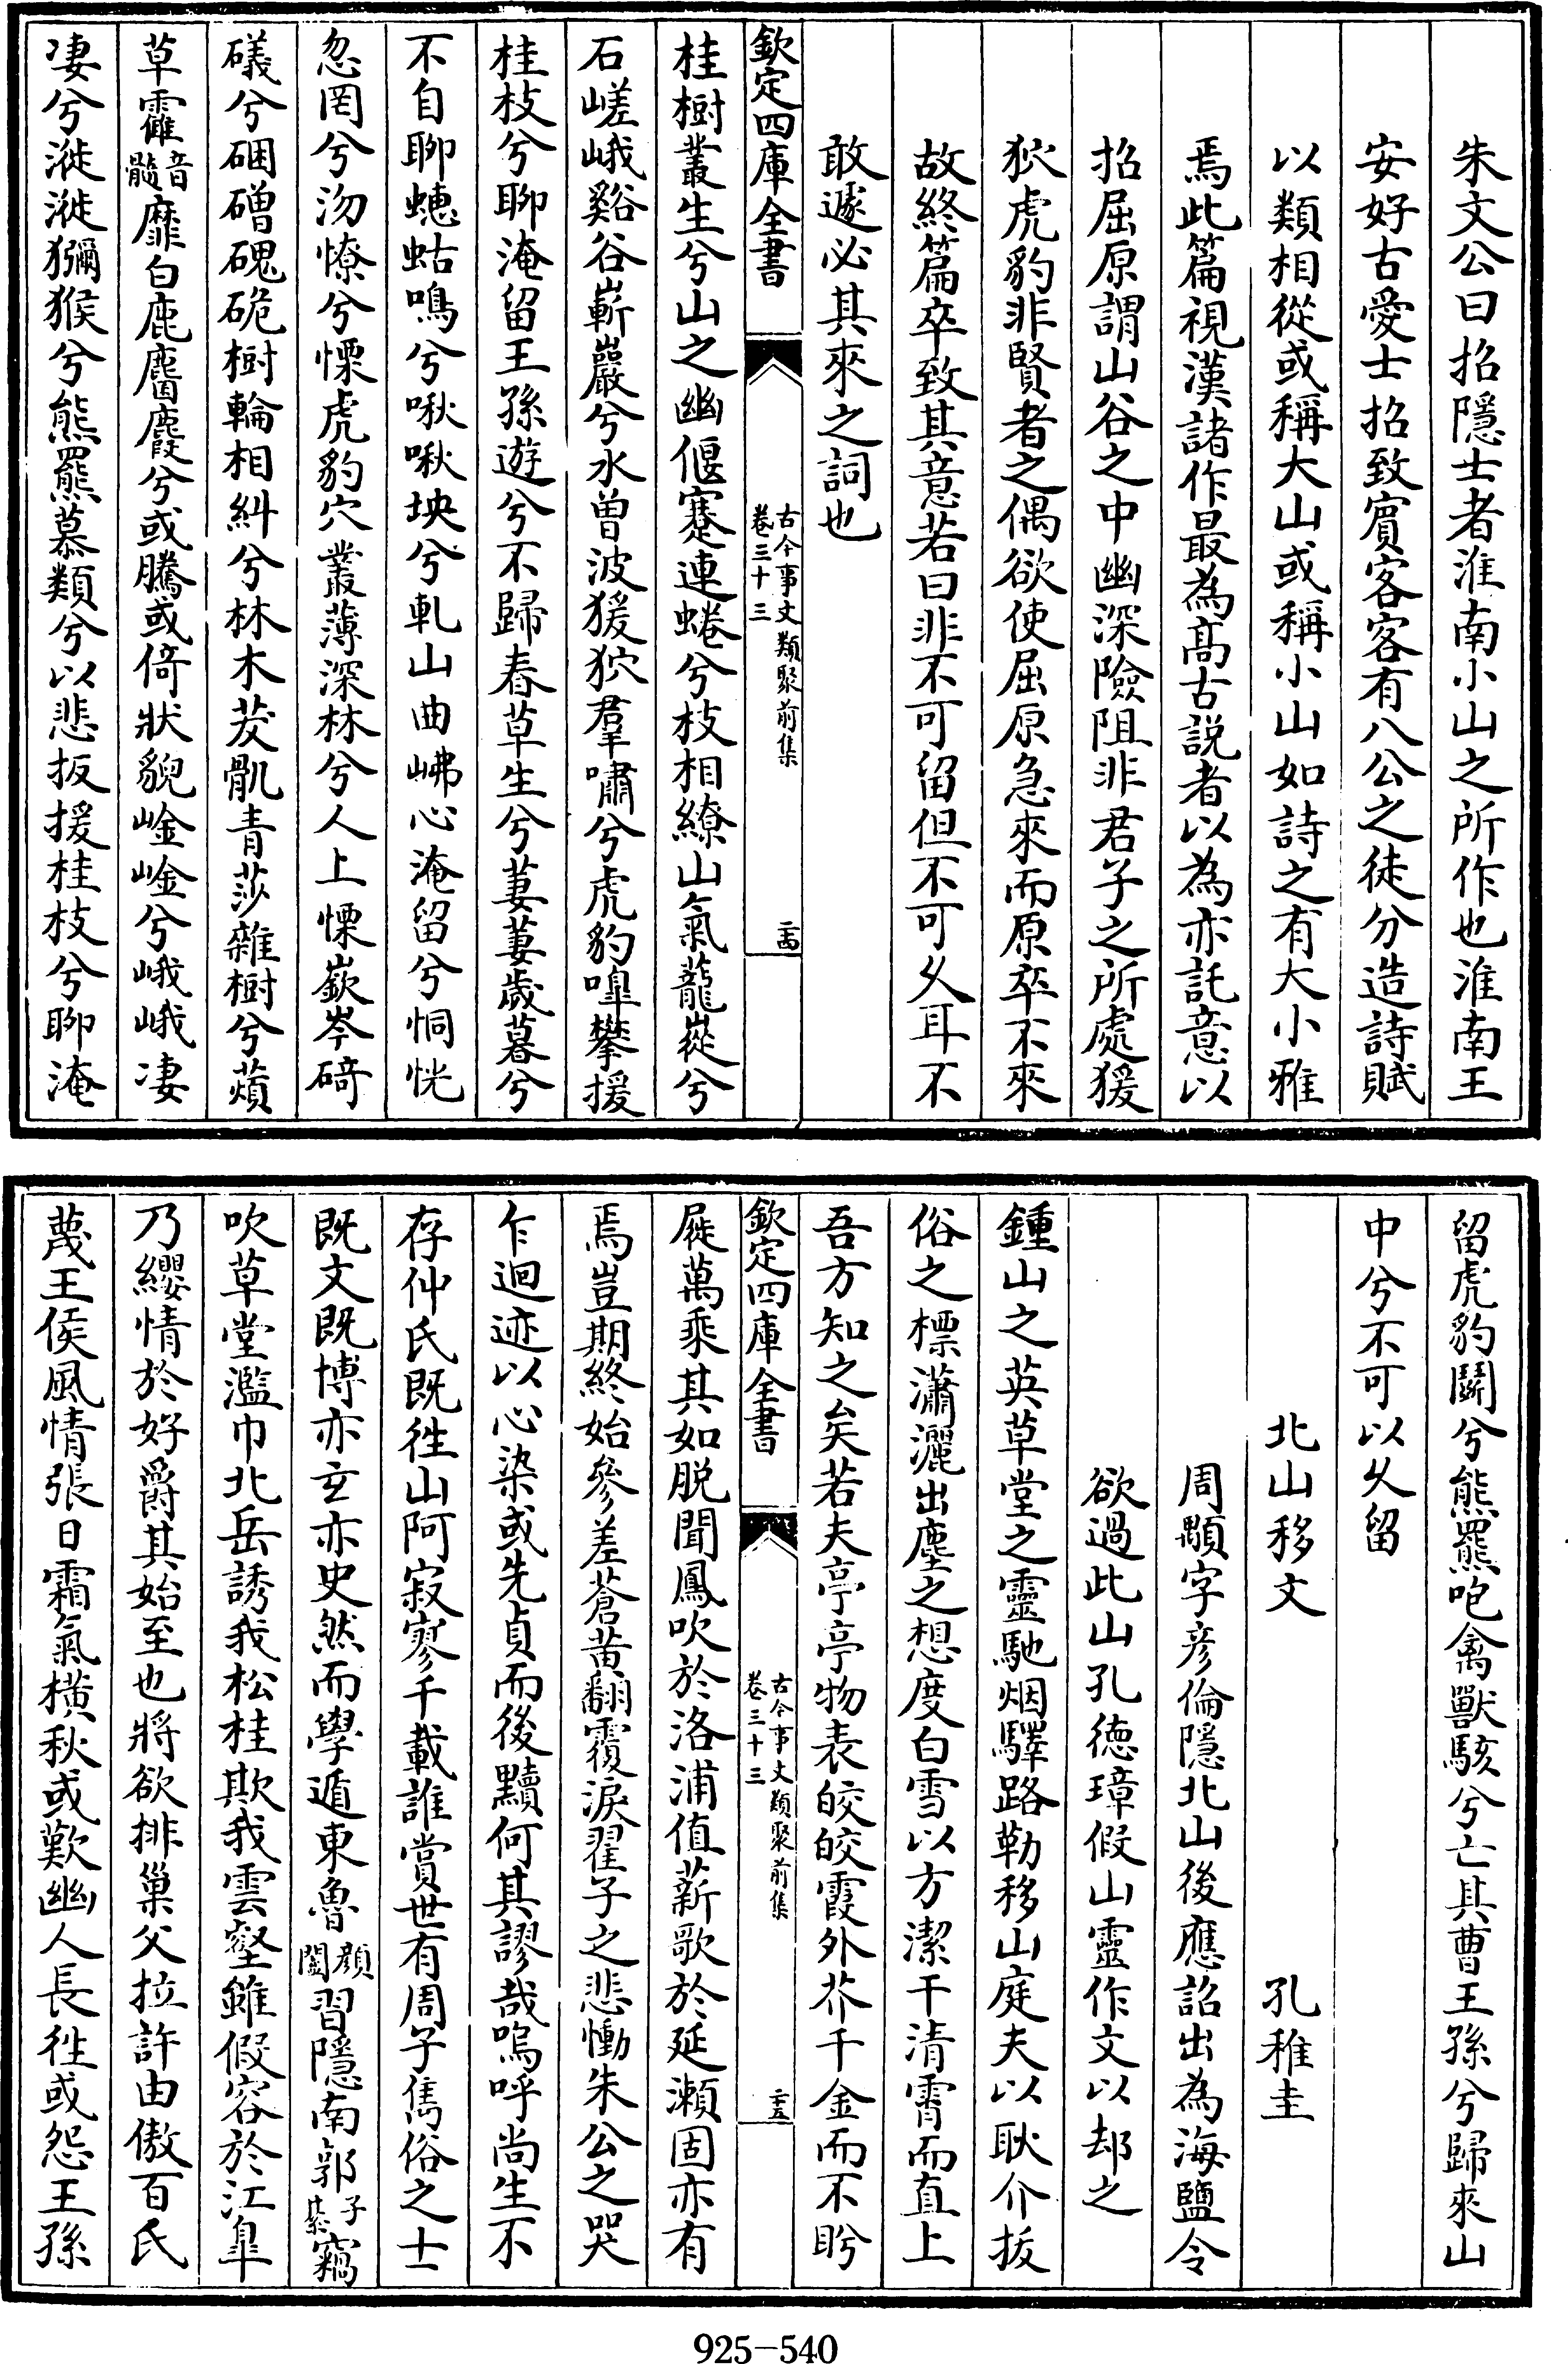 朱文公曰招隱士者淮南小山之所作也淮南王
安好古愛士招致賓客客有八公之徒分造詩賦
以類相從或稱大山或稱小山如詩之有大小雅
焉此篇視漢諸作最為高古説者以為亦託意以
招屈原謂山谷之中幽深險阻非君子之所處猨
狖虎豹非賢者之偶欲使屈原急來而原卒不來
故終篇卒致其意若曰非不可留但不可乆耳不
敢遽必其來之詞也
欽定四庫全書
古今事文類聚前集
卷三十三
二十四
桂樹叢生兮山之幽偃蹇連蜷兮枝相繚山氣巃嵸兮
石嵯峨谿谷嶄巖兮水曾波猨狖羣嘯兮虎豹嘷攀援
桂枝兮聊淹留王孫遊兮不歸春草生兮萋萋歲暮兮
不自聊蟪蛄鳴兮啾啾坱兮軋山曲岪心淹留兮恫恍
忽罔兮沕憭兮慄虎豹穴叢薄深林兮人上慄嶔岑碕
礒兮碅磳磈硊樹輪相糾兮林木茇骩青莎雜樹兮薠
草靃音髓靡白鹿麕麚兮或騰或倚狀貌崯崯兮峨峨凄
凄兮漇漇獼猴兮熊羆慕類兮以悲扳援桂枝兮聊淹
留虎豹鬭兮熊羆咆禽獸駭兮亡其曹王孫兮歸來山
中兮不可以乆留
北山移文 孔稚圭
周顒字彥倫隱北山後應詔出為海鹽令
欲過此山孔德璋假山靈作文以却之
鍾山之英草堂之靈馳烟驛路勒移山庭夫以耿介拔
俗之標瀟灑出塵之想度白雪以方潔干清霄而直上
吾方知之矣若夫亭亭物表皎皎霞外芥千金而不盻
欽定四庫全書
古今事文類聚前集
卷三十三
二十五
屣萬乘其如脱聞鳳吹於洛浦值薪歌於延瀨固亦有
焉豈期終始參差蒼黃翻覆淚翟子之悲慟朱公之哭
乍迴迹以心染或先貞而後黷何其謬哉嗚呼尚生不
存仲氏既徃山阿寂寥千載誰賞世有周子雋俗之士
既文既博亦玄亦史然而學遁東魯顔闔習隱南郭子綦竊
吹草堂濫巾北岳誘我松桂欺我雲壑雖假容於江臯
乃纓情於好爵其始至也將欲排巢父拉許由傲百氏
蔑王侯風情張日霜氣橫秋或歎幽人長徃或怨王孫
925-540